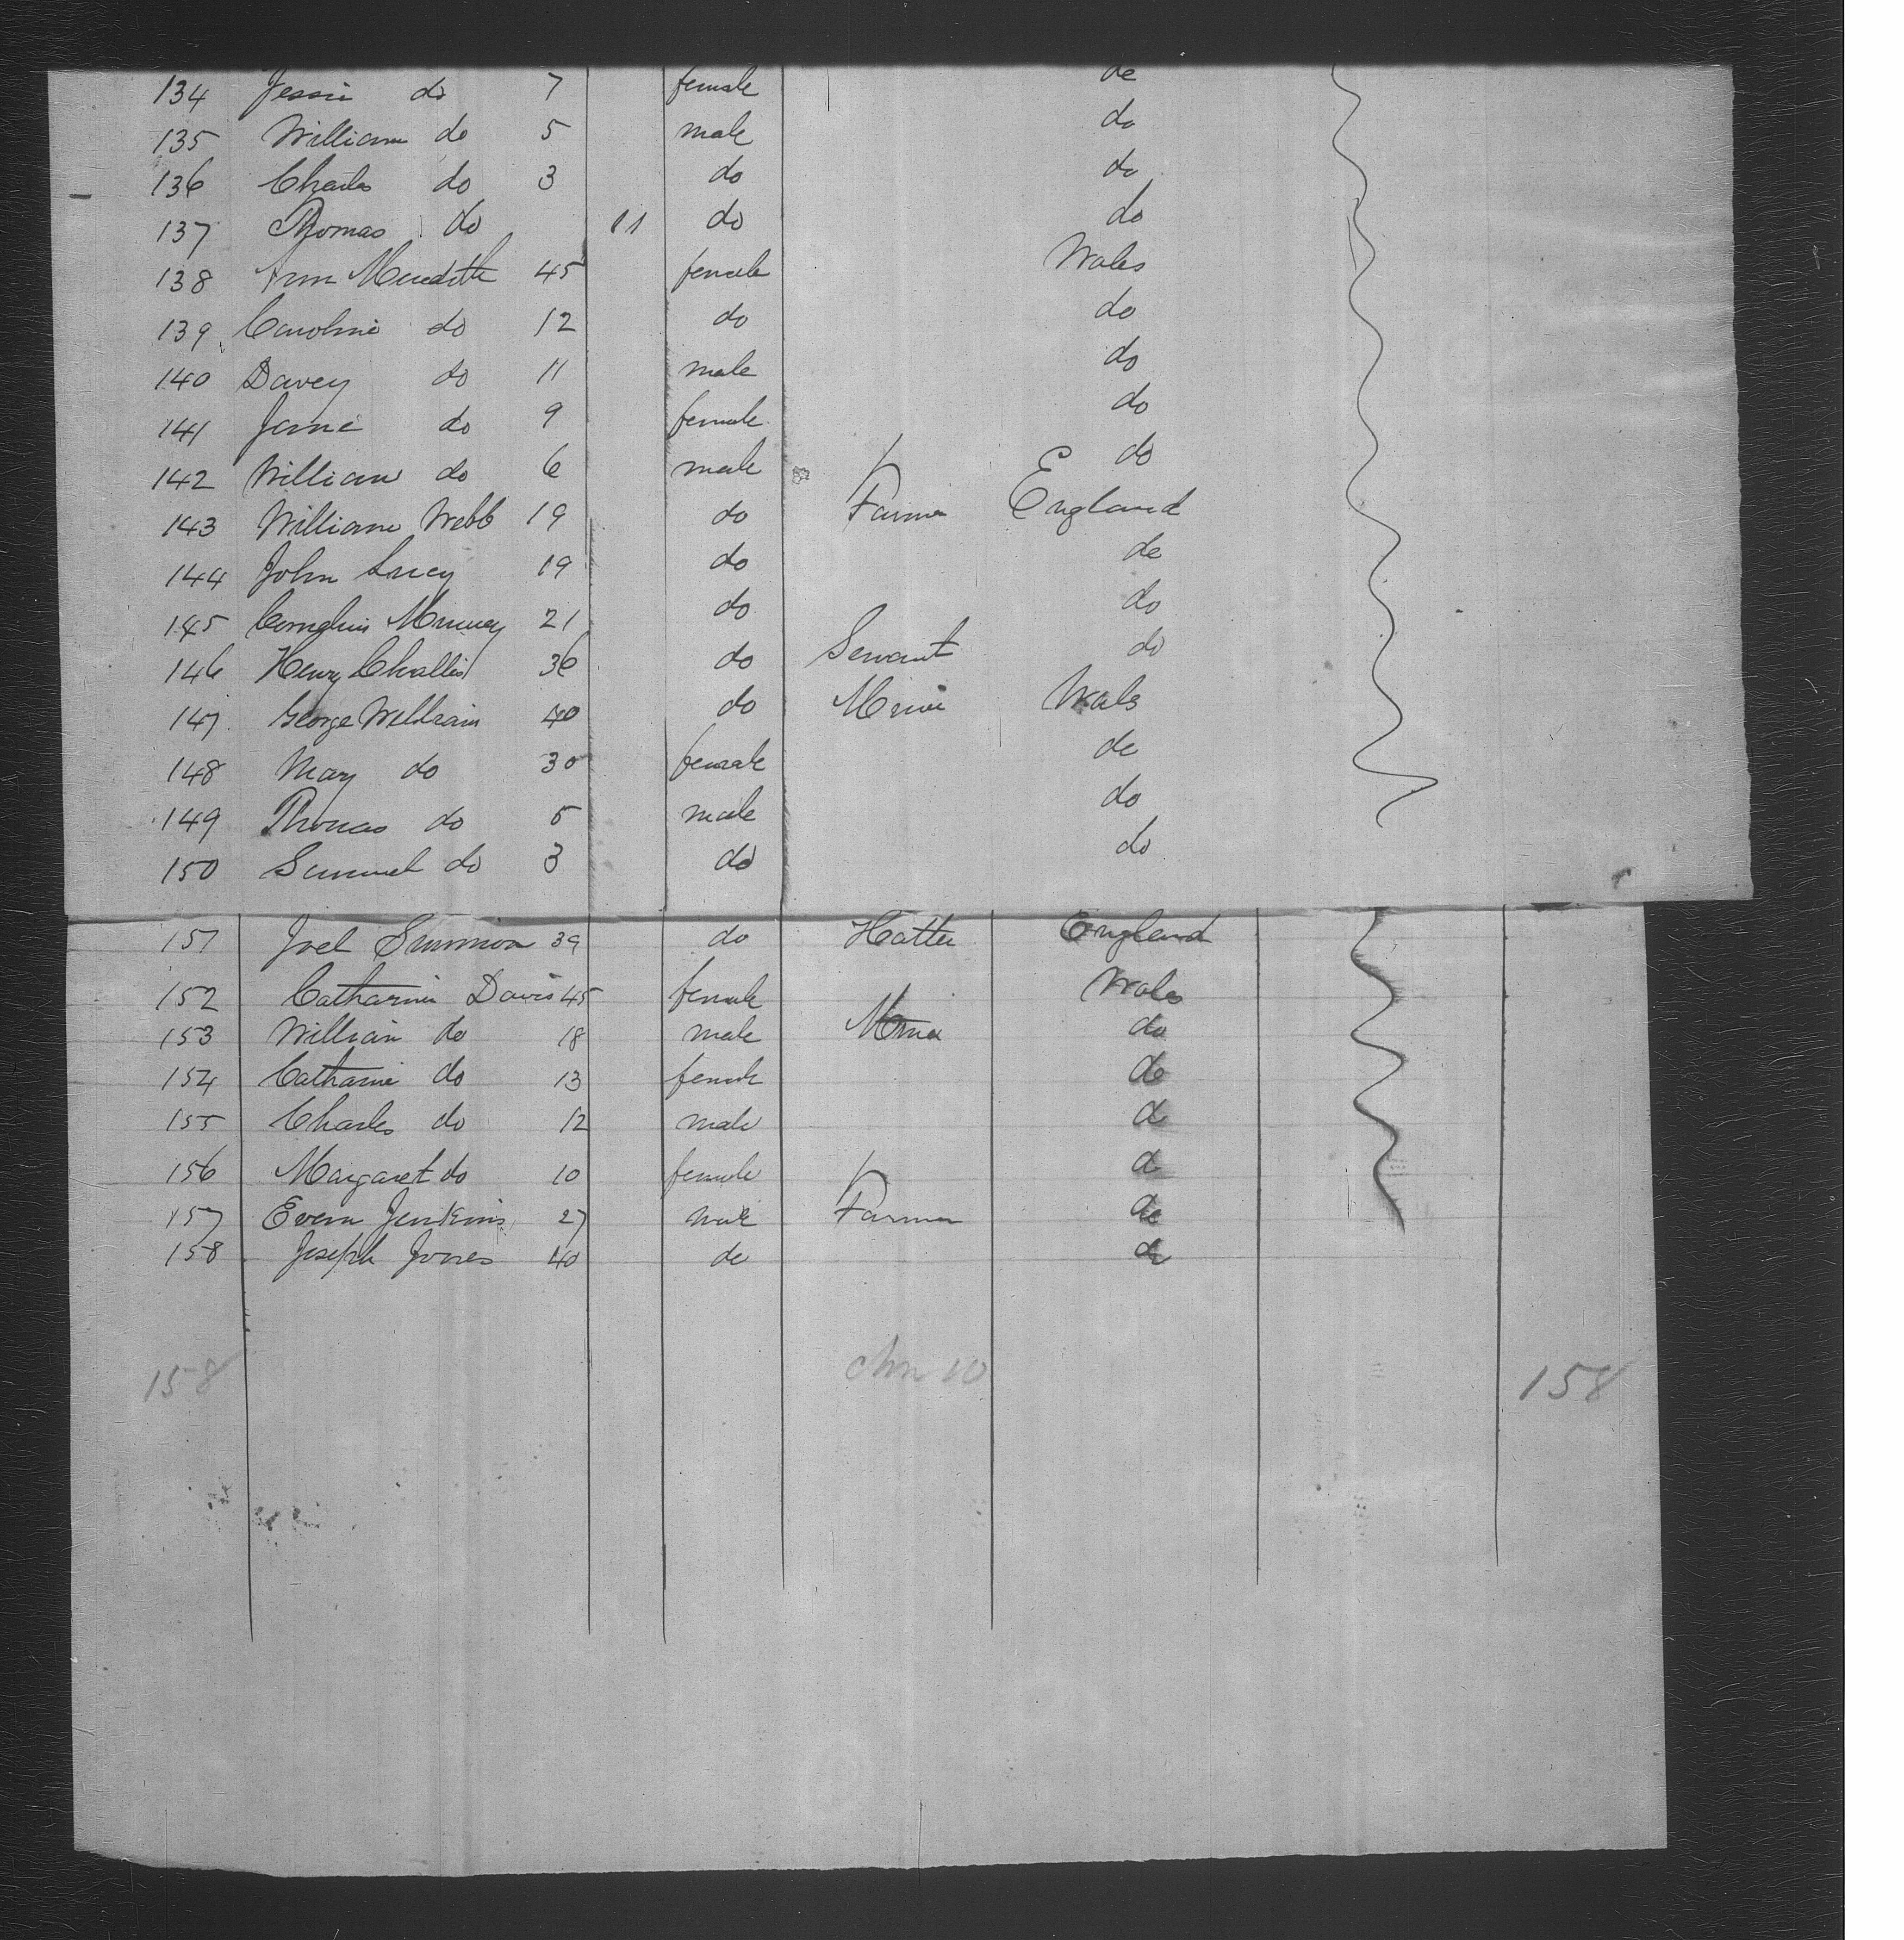 134 Jessie do 7 female do
135 William do 5 male do
136 Charles do 3 do do
137 Thomas do 11 do do
138 Ann Meredith 45 female Wales
139 Caroline do 12 do do
140 Davey do 11 male do
141 Jane do 9 female do
142 William do 6 male do
143 William Webb 19 do Farmer England
144 John Lucy 19 do do
145 Cornelius 21 do do
146 Henry Challis 36 do Servant do
147 George William 40 do Miner Wales
148 Mary do 30 female do
149 Thomas do 5 male do
150 Samuel do 3 do do
151 Joel Simmon 39 do Hatter England
152 Catharine Davis 45 female Wales
153 William do 18 male Miner do
154 Catharine do 13 female do
155 Charles do 12 male do
156 Margaret do 10 female do
157 Evan Jenkins 27 male Farmer do
158 Joseph Jones 40 do do
158 158